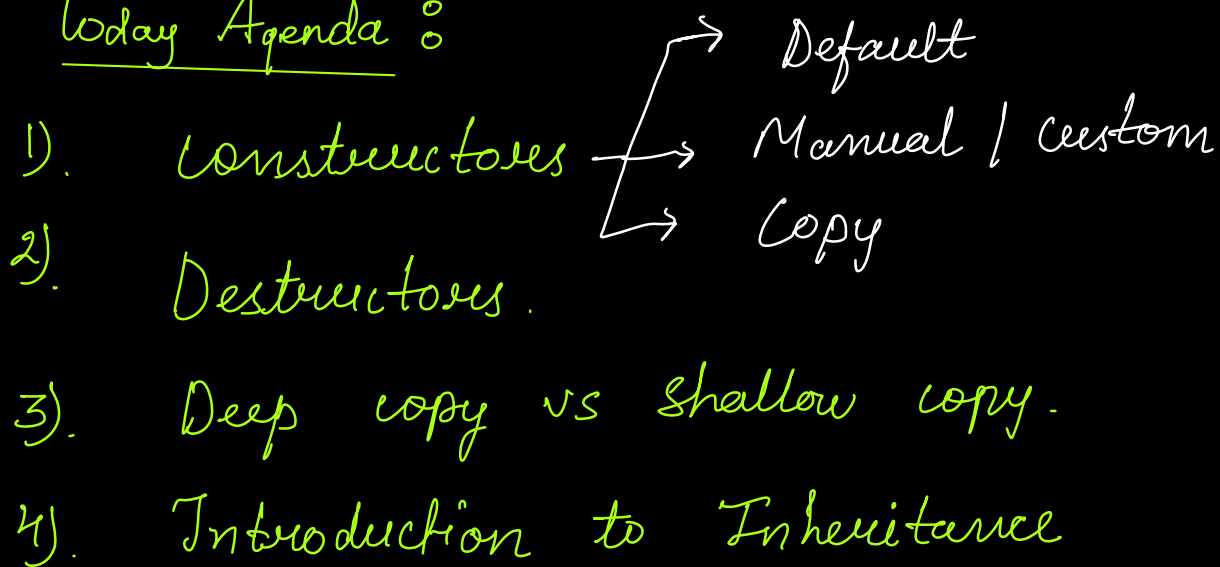 Today Agenda :
1). Constructors → Default
→ Manual / Custom
→ Copy
2). Destructors.
3). Deep copy vs shallow copy.
4). Introduction to Inheritance